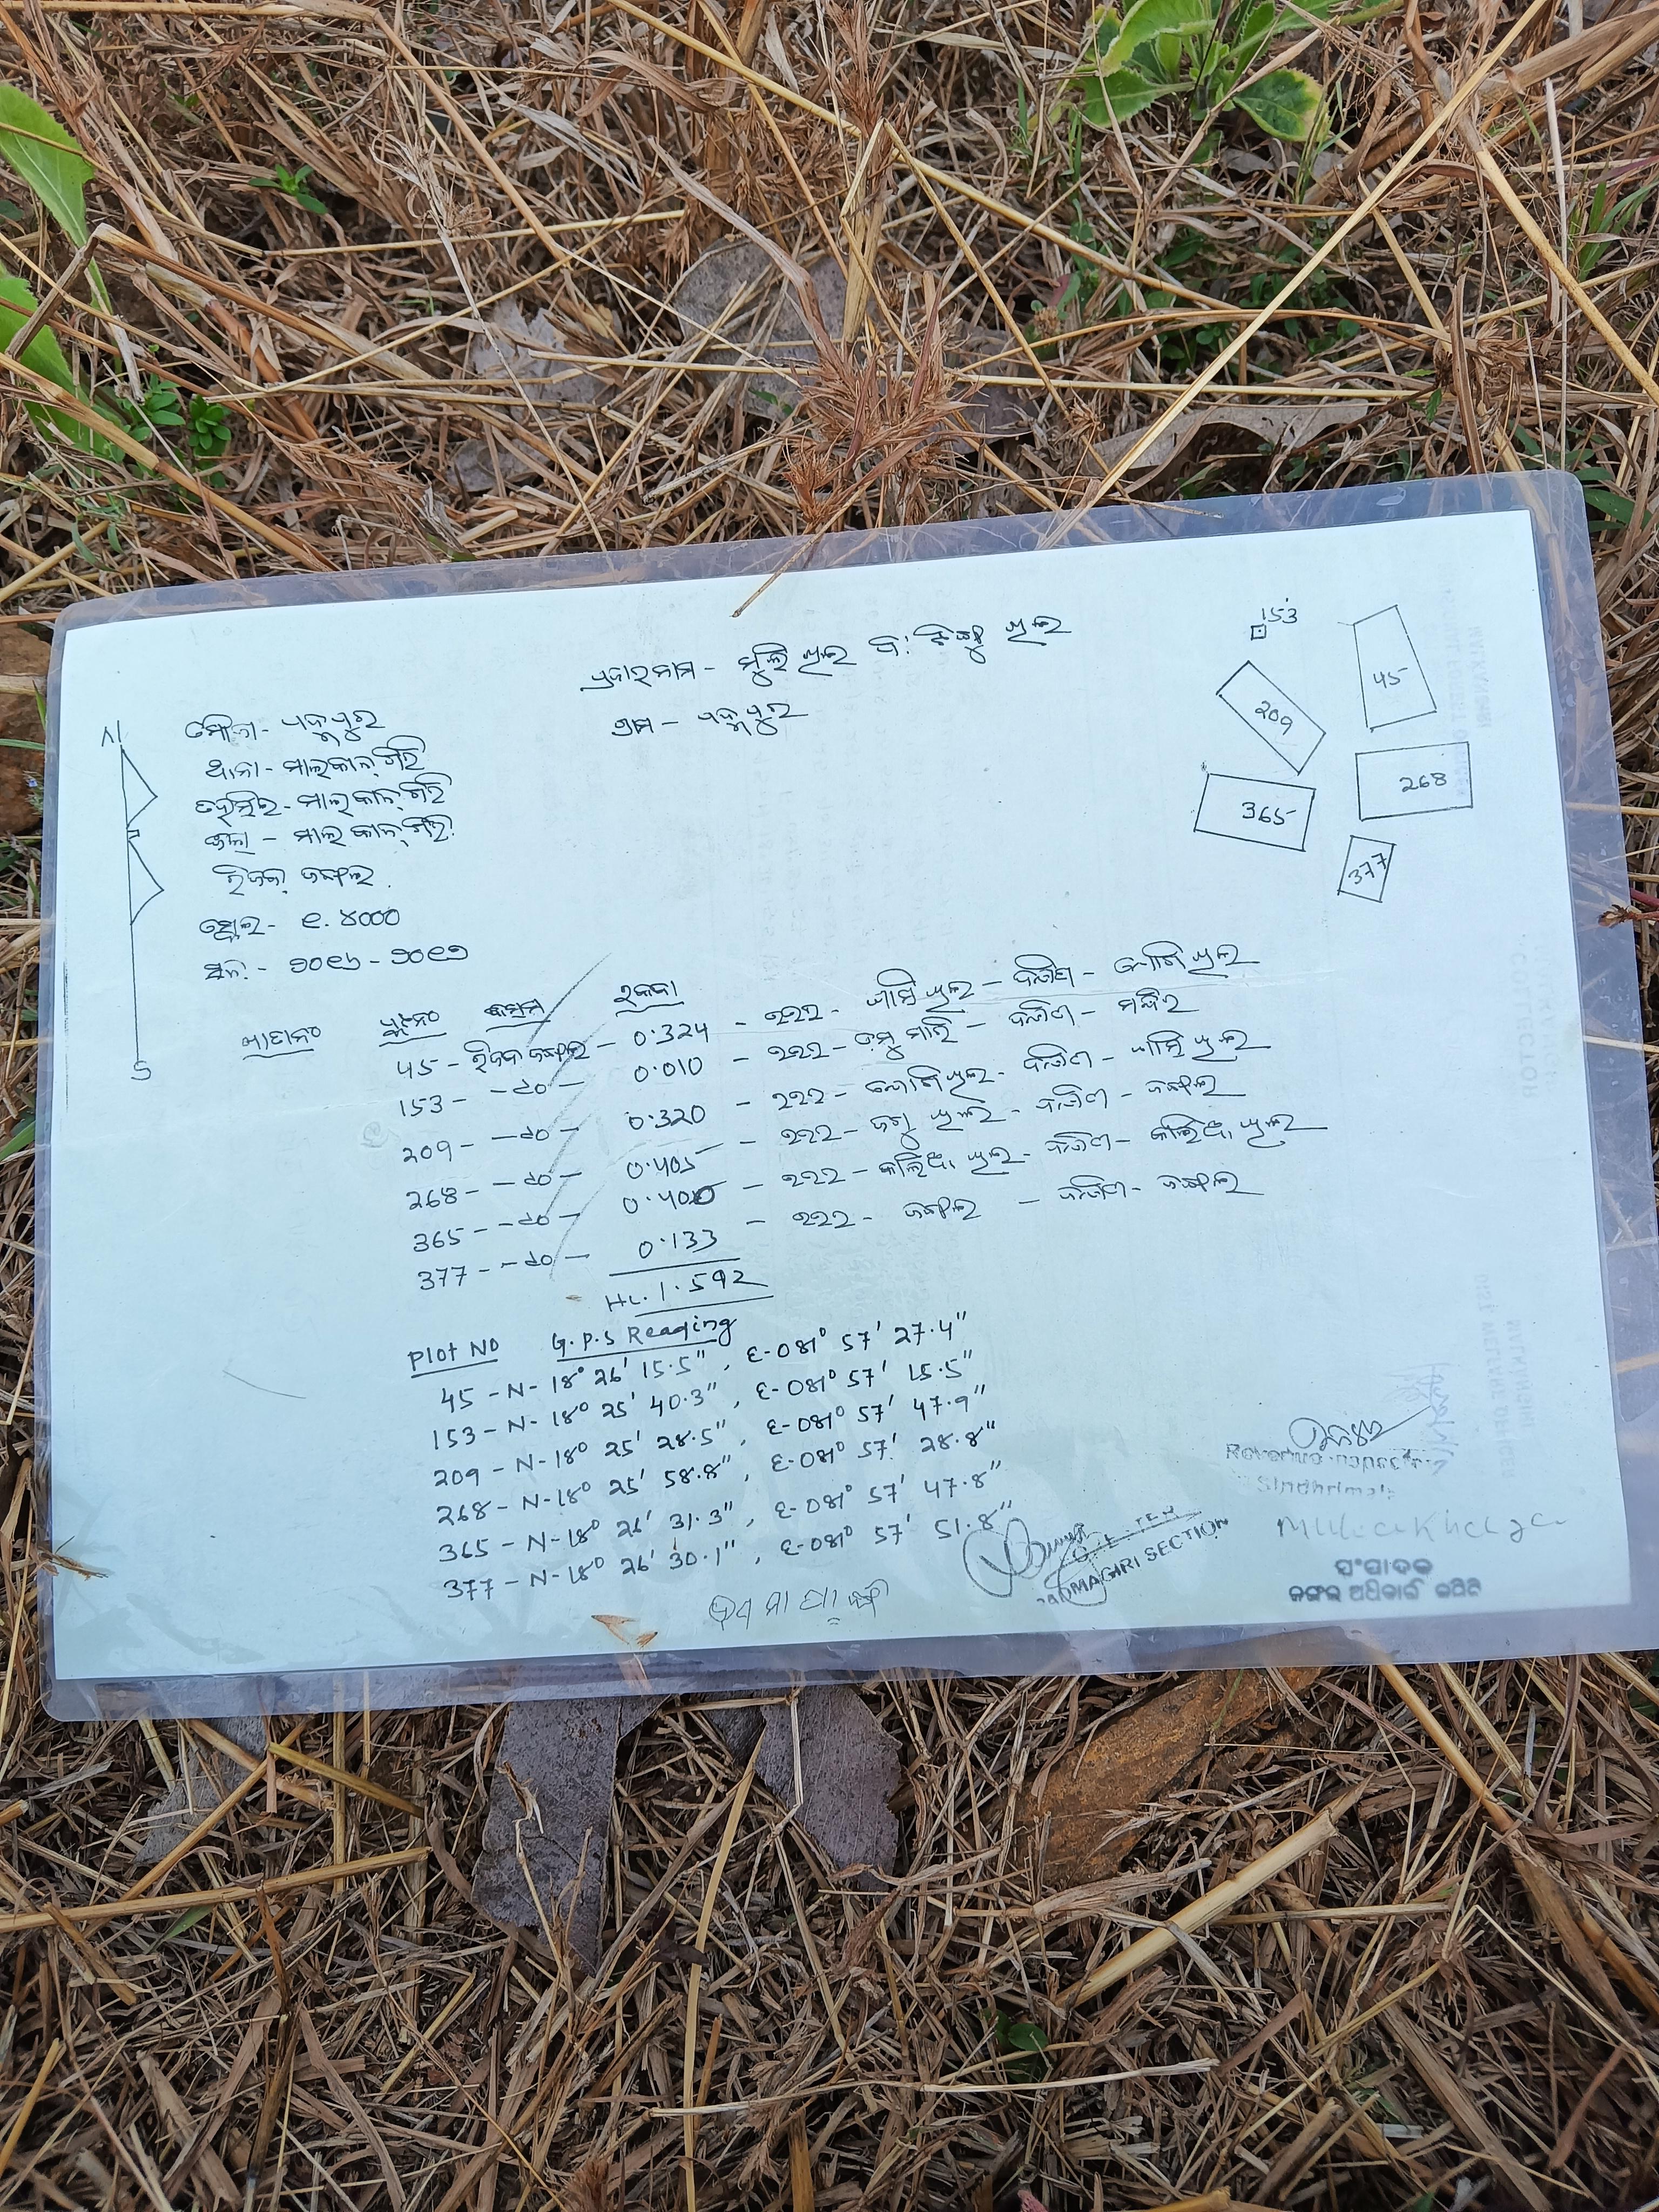 N
S
ପ୍ରଜାର ନାମ - ମୁଲି ଖିଲ ପି: ଖିଲ
ମୌଜା - ପଦ୍ମପୁର
ଗ୍ରାମ - ପଦ୍ମପୁର
ଥାନା - ମାଲକାନ୍‌ଗିରି
ତହସିଲ - ମାଲକାନ୍‌ଗିରି
ଜିଲ୍ଲା - ମାଲକାନ୍‌ଗିରି
ରିଜର୍ଭ ଜଙ୍ଗଲ
ସ୍କେଲ - ୧.୪୦୦୦
ସନ - ୨୦୧୬ - ୨୦୧୭
153
45
209
268
365
377
ଖାତା ନଂ ପ୍ଲଟ ନଂ କିସମ ରକବା
45 - ରିଜର୍ଭ ଜଙ୍ଗଲ - 0.324 - ଉତ୍ତର - ଖିଲ - ଦକ୍ଷିଣ - ଖିଲ
153 - -do- 0.010 - ଉତ୍ତର - ମାଝି - ଦକ୍ଷିଣ - ମନ୍ଦିର
209 - -do- 0.320 - ଉତ୍ତର - ଖିଲ - ଦକ୍ଷିଣ - ଖିଲ
268 - -do- 0.405 - ଉତ୍ତର - ଖିଲ - ଦକ୍ଷିଣ - ଜଙ୍ଗଲ
365 - -do- 0.400 - ଉତ୍ତର - ଖିଲ - ଦକ୍ଷିଣ - ଖିଲ
377 - -do- 0.133 - ଉତ୍ତର - ଜଙ୍ଗଲ - ଦକ୍ଷିଣ - ଜଙ୍ଗଲ
Hc. 1.592
Plot No G.P.S Reading
45 - N-18° 26' 15.5", E-081° 57' 27.4"
153 - N-18° 25' 40.3", E-081° 57' 15.5"
209 - N-18° 25' 28.5", E-081° 57' 47.9"
268 - N-18° 25' 58.8", E-081° 57' 28.8"
365 - N-18° 26' 31.3", E-081° 57' 47.8"
377 - N-18° 26' 30.1", E-081° 57' 51.8"
Sindhrimala
MAGIRI SECTION
ସଂପାଦକ
ଜଙ୍ଗଲ ଅଧିକାର କମିଟି